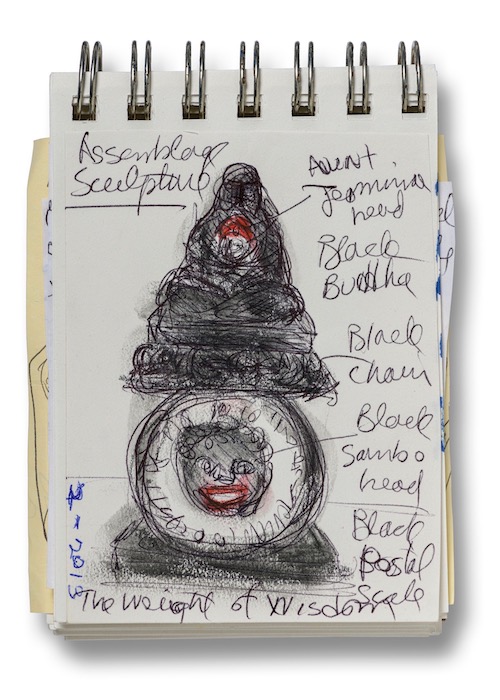 Assemblage
Sculpture
Aunt
Jemmima
head
Black
Buddha
Black
chain
Black
Sambo
head
Black
Postal
Scale
The Weight of Wisdom